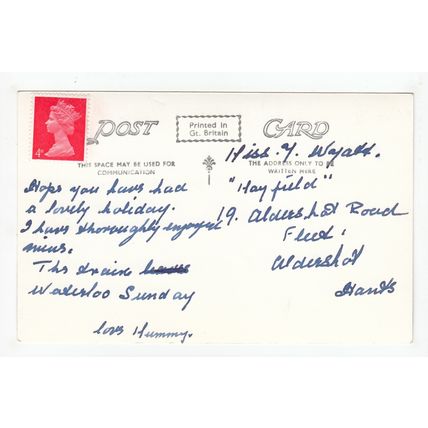 4D
POST CARD
Printed in
Gt. Britain
THIS SPACE MAY BE USED FOR
COMMUNICATION
THE ADDRESS ONLY TO BE
WRITTEN HERE
Hope you have had
a lovely holiday.
I have thoroughly enjoyed
mine.
The train leaves
Waterloo Sunday
love Mummy.
Miss. Y. Wyatt.
"Hayfield"
19. Aldershot Road
Fleet.
Aldershot
Hants